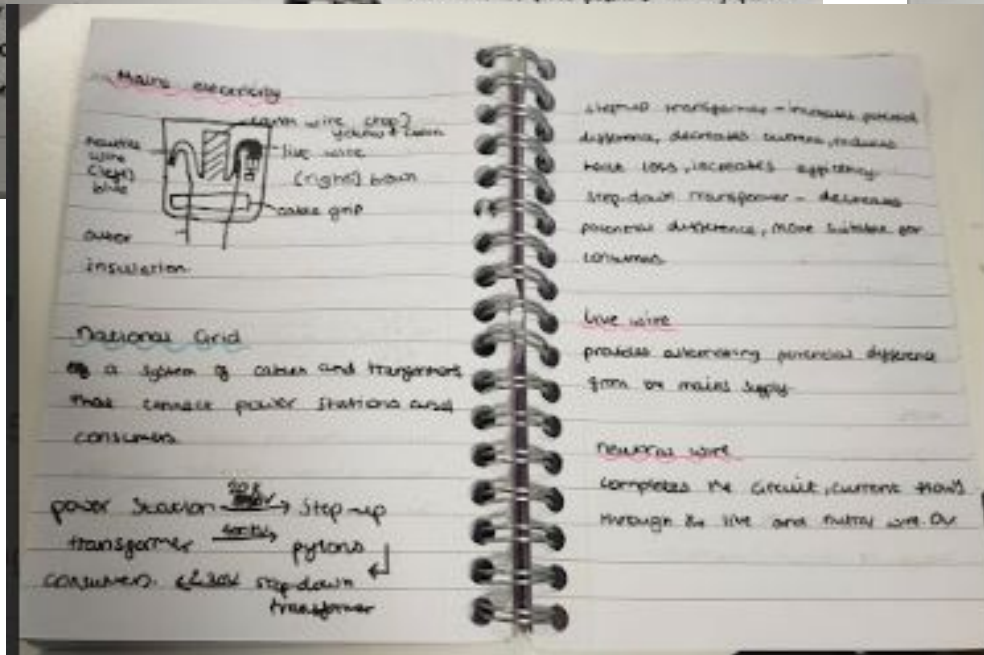 Mains electricity
earth wire (top)
yellow & green
neutral
wire
(left)
blue
live wire
(right) brown
cable grip
outer
insulation.
National Grid
a system of cables and transformers
that connect power stations and
consumers
power station → step-up
transformer 400kV → pylons
consumers. ← 230V step-down
transformer
step-up transformer - increases potential
difference, decreases current, reduces
heat loss, increases efficiency.
step-down transformer - decreases
potential difference, more suitable for
consumers
live wire
provides alternating potential difference
from the mains supply.
neutral wire
completes the circuit, current flows
through the live and nutral wire.